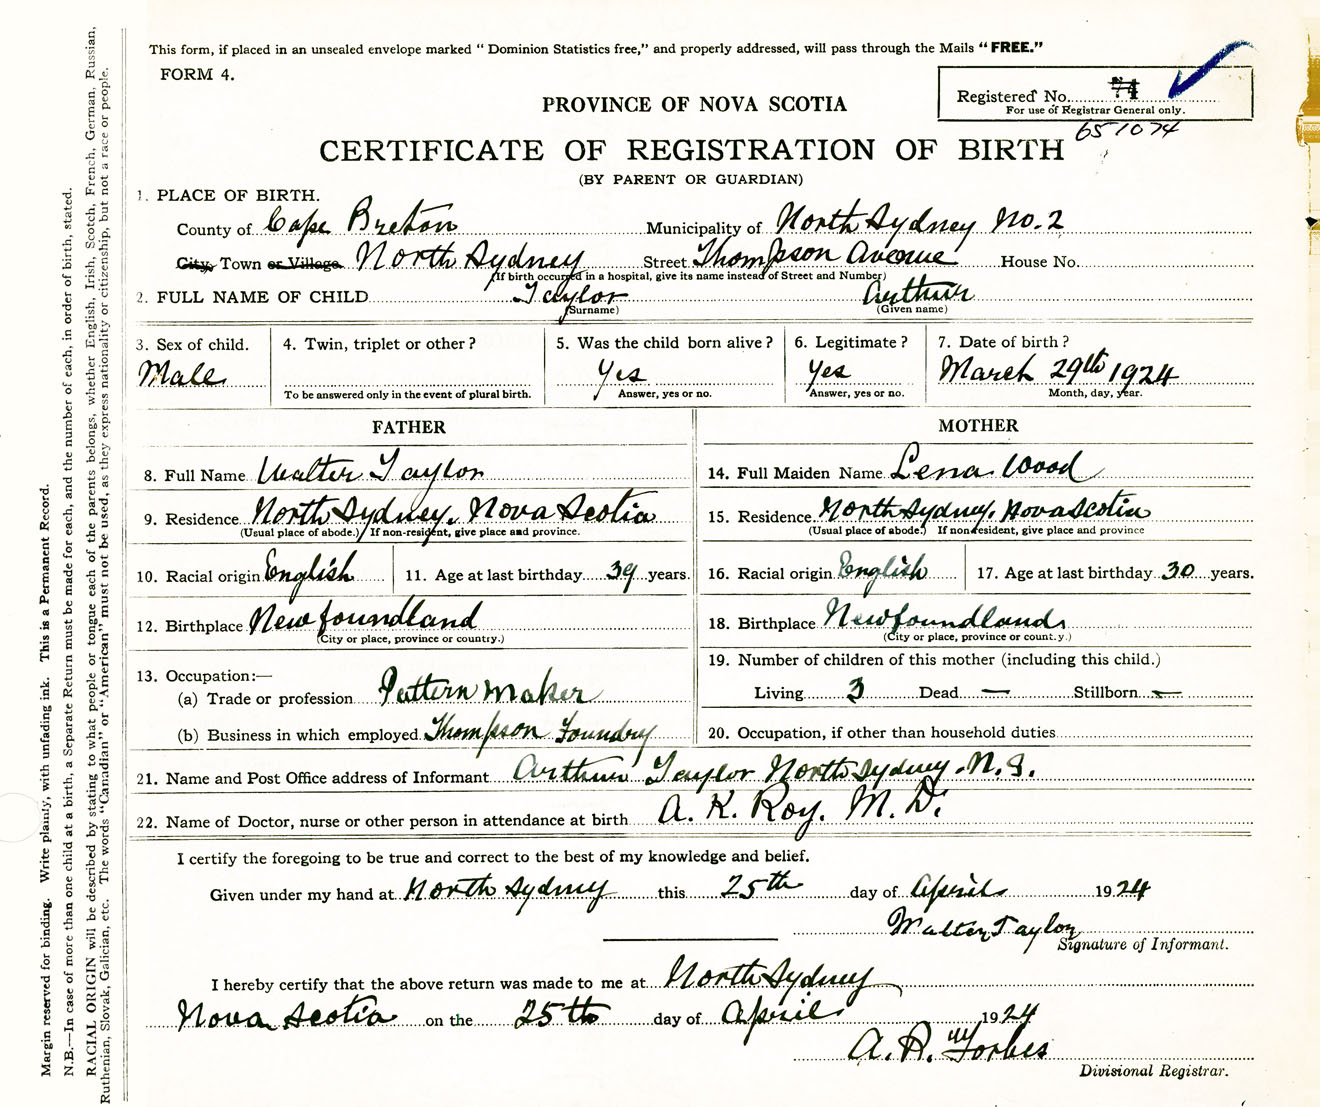 This form, if placed in an unsealed envelope marked “ Dominion Statistics free,” and properly addressed, will pass through the Mails “ FREE.”
FORM 4.
Registered No. 74
For use of Registrar General only.
651074
PROVINCE OF NOVA SCOTIA
CERTIFICATE OF REGISTRATION OF BIRTH
(BY PARENT OR GUARDIAN)
1. PLACE OF BIRTH.
County of Cape Breton Municipality of North Sydney No. 2
City, Town or Village North Sydney Street Thompson Avenue House No.
(If birth occurred in a hospital, give its name instead of Street and Number)
2. FULL NAME OF CHILD Taylor Arthur
(Surname) (Given name)
3. Sex of child. 4. Twin, triplet or other ? 5. Was the child born alive ? 6. Legitimate ? 7. Date of birth ?
Male Yes Yes March 29th 1924
To be answered only in the event of plural birth. Answer, yes or no. Answer, yes or no. Month, day, year.
FATHER MOTHER
8. Full Name Walter Taylor 14. Full Maiden Name Lena Wood
9. Residence North Sydney, Nova Scotia 15. Residence North Sydney, Nova Scotia
(Usual place of abode.) If non-resident, give place and province. (Usual place of abode.) If non-resident, give place and province
10. Racial origin English 11. Age at last birthday 39 years. 16. Racial origin English 17. Age at last birthday 30 years.
12. Birthplace Newfoundland 18. Birthplace Newfoundland
(City or place, province or country.) (City or place, province or country.)
13. Occupation:— 19. Number of children of this mother (including this child.)
(a) Trade or profession Pattern Maker Living 3 Dead — Stillborn —
(b) Business in which employed Thompson Foundry 20. Occupation, if other than household duties
21. Name and Post Office address of Informant Arthur Taylor North Sydney. N.S.
22. Name of Doctor, nurse or other person in attendance at birth A. K. Roy. M. D.
I certify the foregoing to be true and correct to the best of my knowledge and belief.
Given under my hand at North Sydney this 25th day of April 1924
Walter Taylor
Signature of Informant.
I hereby certify that the above return was made to me at North Sydney
Nova Scotia on the 25th day of April 1924
A. R. Forbes
Divisional Registrar.
Margin reserved for binding. Write plainly, with unfading ink. This is a Permanent Record.
N.B.—In case of more than one child at a birth, a Separate Return must be made for each, and the number of each, in order of birth, stated.
RACIAL ORIGIN will be described by stating to what people or tongue each of the parents belongs, whether English, Irish, Scotch, French, German, Russian,
Ruthenian, Slovak, Galician, etc. The words “Canadian” or “American” must not be used, as they express nationality or citizenship, but not a race or people.